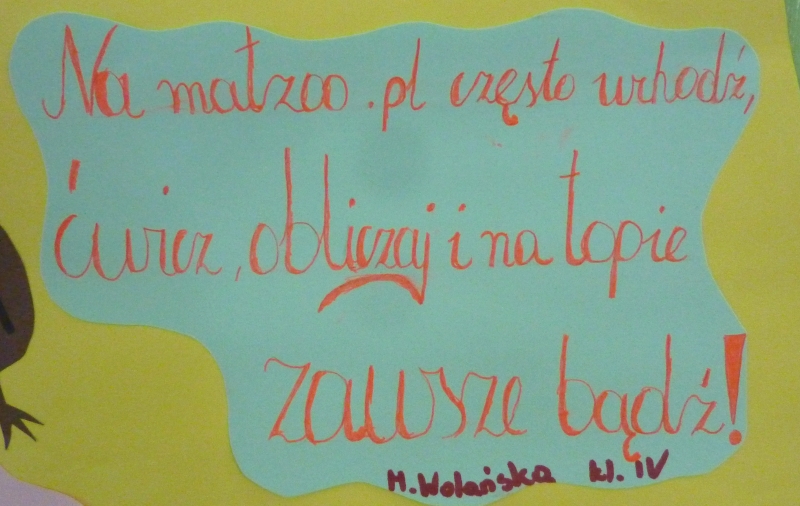 Na matzoo.pl często wchodź,
ćwicz, obliczaj i na topie
zawsze bądź!
M. Wolańska kl. IV